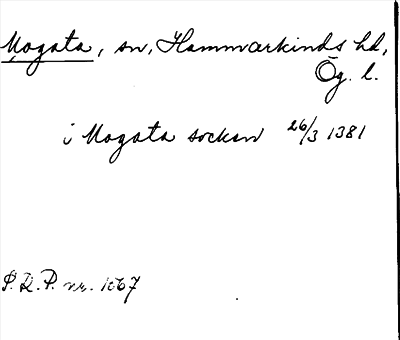 Mogata, sn, Hammarkinds hd,
Ög. l.
i Mogata sockan 26/3 1381
S. R. P. nr. 1567